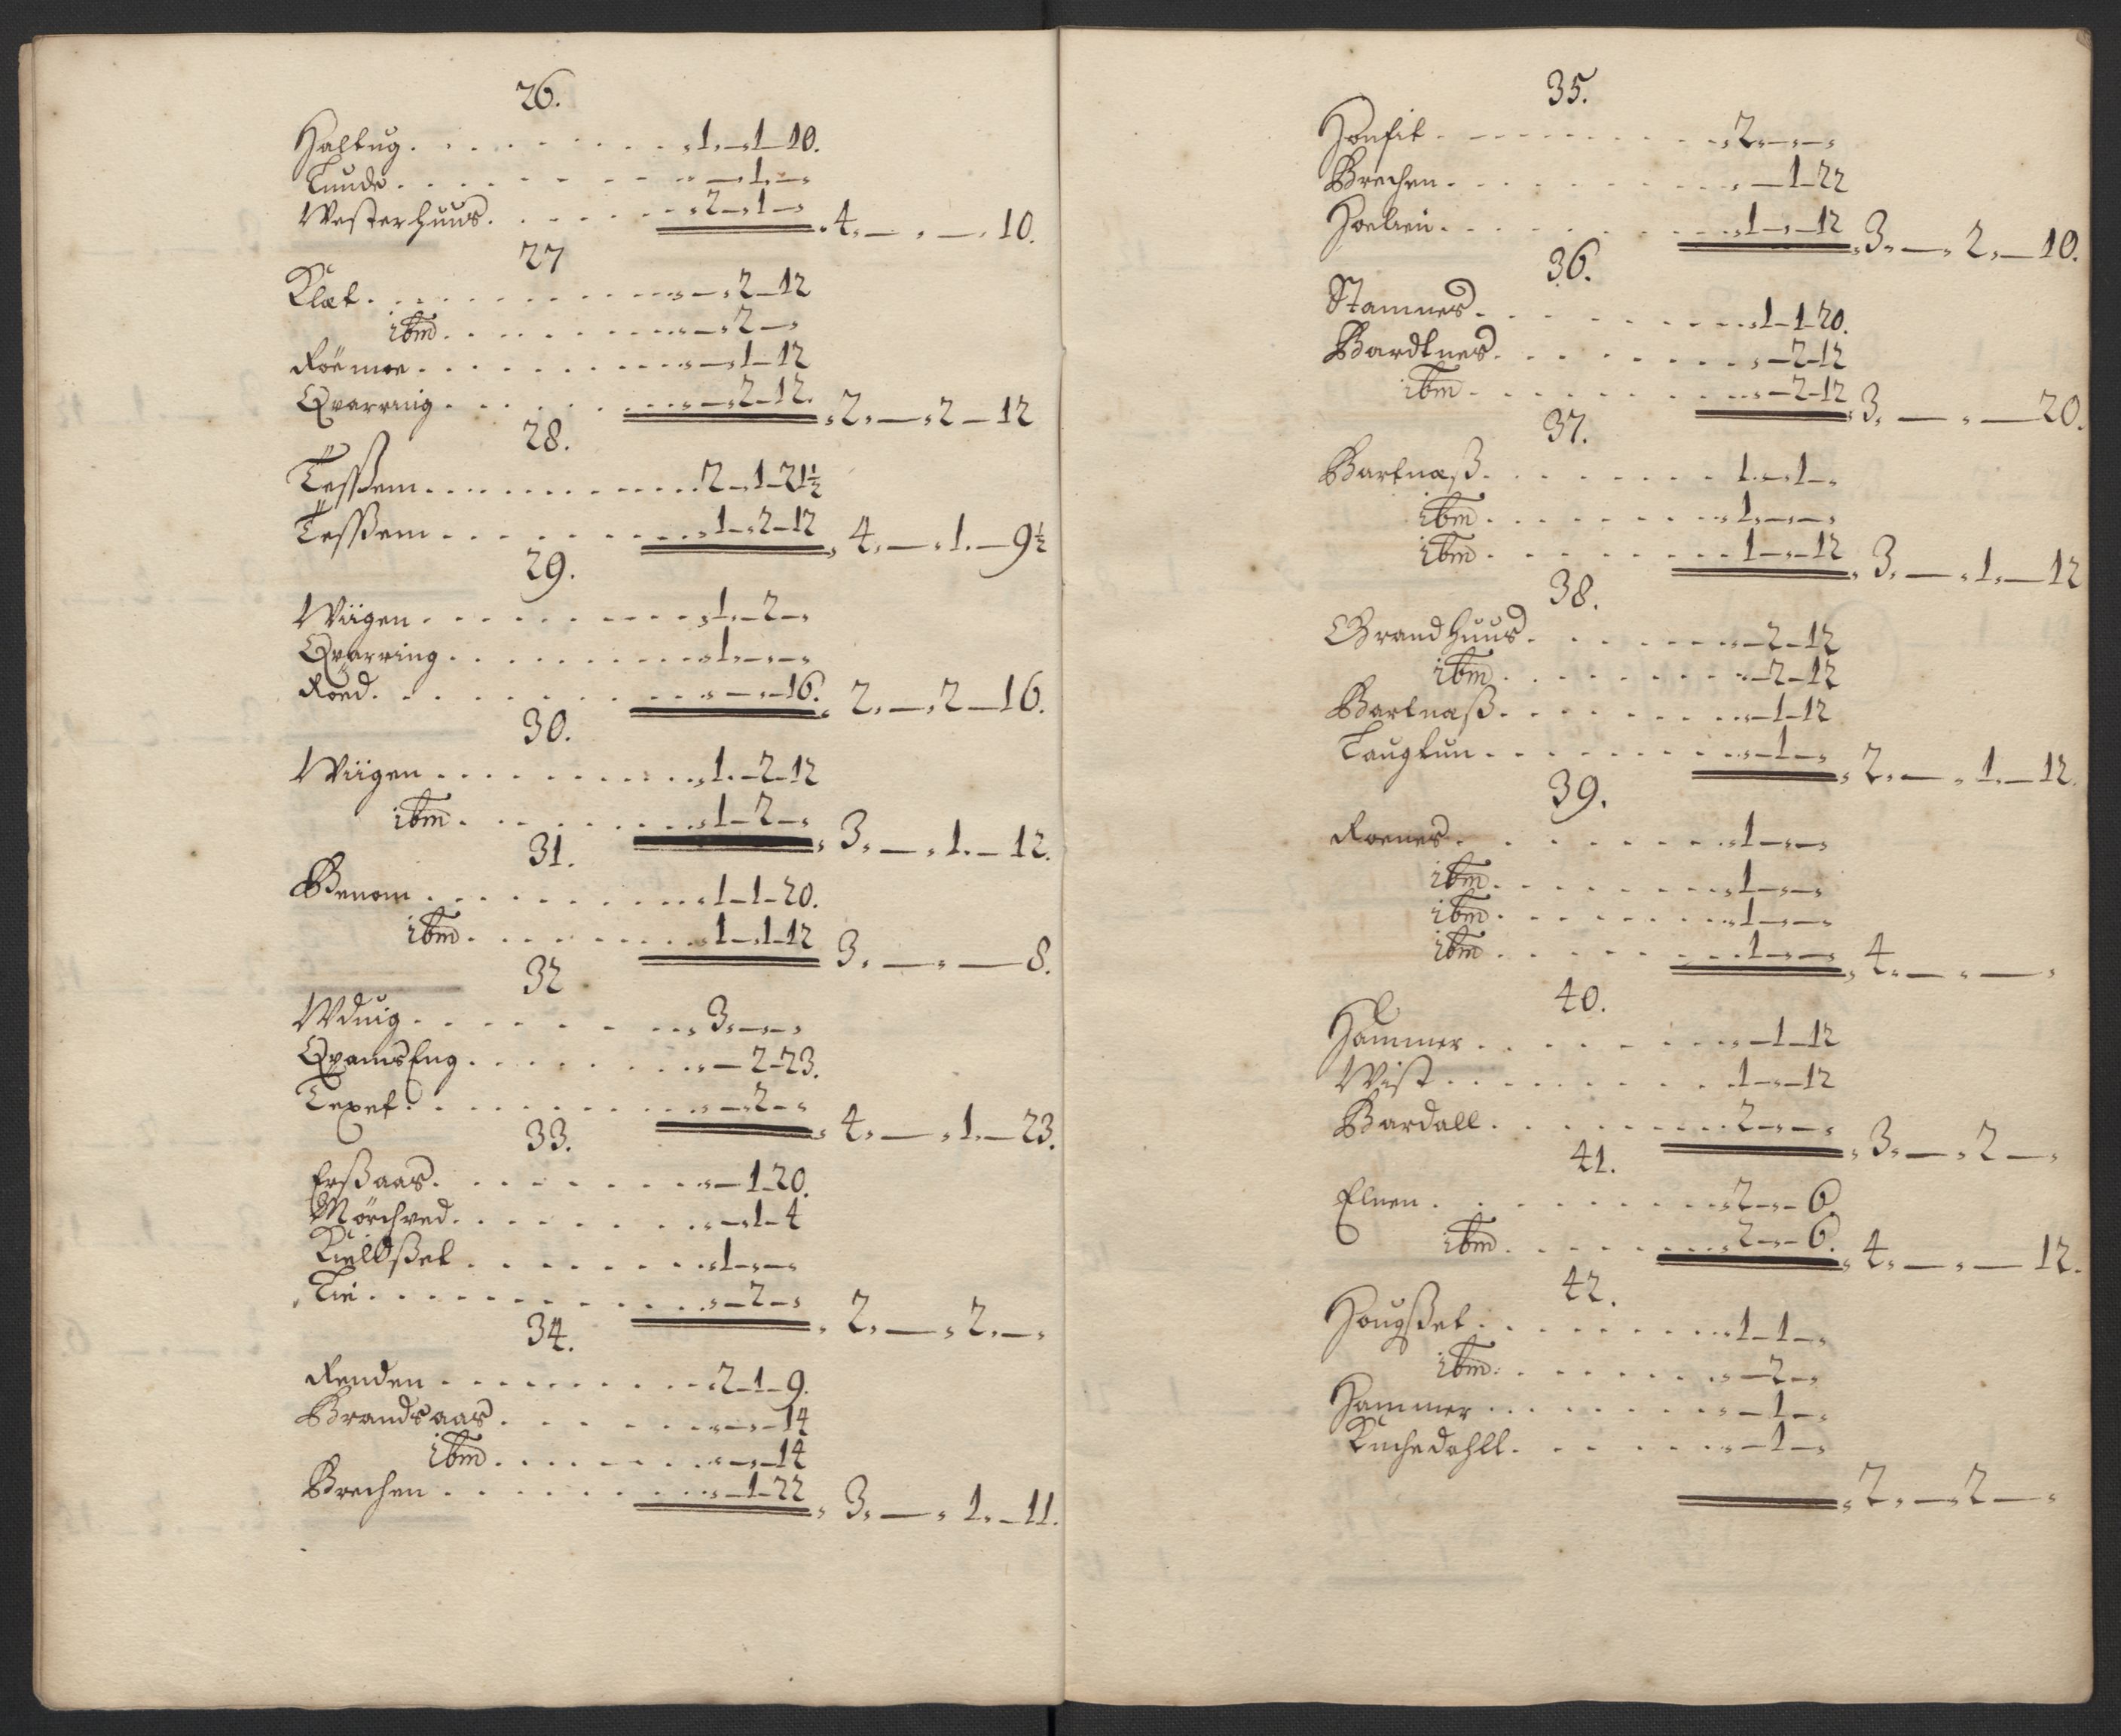 26.
Haltug . . . . . . . . . 1 — 1 — 10.
Tunde . . . . . . . . . — 1 —
Westerhuus . . . . . . 2 — 1 — 4. — . — . 10.
27
Klæt . . . . . . . . . — 2 — 12
ibm . . . . . . . . . — 2 —
Röe moe . . . . . . . . . — 1 — 12
Qvarring . . . . . . . . . — 2 — 12. 2. — 2 — 12
28.
Tessem . . . . . . . . . 2 — 1 — 21½
Tessem . . . . . . . . . 1 — 2 — 12 4. — 1. — 9½
29.
Wiigen . . . . . . . . . 1. — 2 —
Qvarring . . . . . . . . . 1. — —
Röed . . . . . . . . . — — 16. 2. — 2 — 16.
30.
Wiigen . . . . . . . . . 1. — 2 — 12
ibm . . . . . . . . . 1 — 2 — 3. — 1. — 12.
31.
Benom . . . . . . . . . 1 — 1 — 20.
ibm . . . . . . . . . 1 — 1 — 12 3. — . — 8.
32
Wduig . . . . . . . . . 3. — —
QvamsEng . . . . . . . . . — 2 — 23.
Texet . . . . . . . . . — 2 — 4. — 1. — 23.
33.
Erßaas . . . . . . . . . — 1 — 20.
Mörchved . . . . . . . . . — 1 — 4
Kieldßet . . . . . . . . . 1 — —
Lie . . . . . . . . . — 2 — 2. — 2. —
34.
Renden . . . . . . . . . 2 — 1 — 9.
Brandsaas . . . . . . . . . — — 14
ibm . . . . . . . . . — — 14
Brechen . . . . . . . . . — 1 — 22 3. — 1. — 11.
35.
Honfit . . . . . . . . . 2. — —
Brechen . . . . . . . . . — 1 — 22
Hoelien . . . . . . . . . 1 — — 12 3. — 2. — 10.
36.
Stamnes . . . . . . . . . 1 — 1 — 20.
Bardtnes . . . . . . . . . — 2 — 12
ibm . . . . . . . . . — 2 — 12 3. — . — 20.
37.
Bartnæß . . . . . . . . . 1. — 1 —
ibm . . . . . . . . . 1. — —
ibm . . . . . . . . . 1 — — 12 3. — 1. — 12
38.
Brandhuus . . . . . . . . . — 2 — 12
ibm . . . . . . . . . — 2 — 12
Bartnaß . . . . . . . . . — 1 — 12
Taugtun . . . . . . . . . — 1 — 2. — 1. — 12.
39.
Roenes . . . . . . . . . 1 — —
ibm . . . . . . . . . 1 — —
ibm . . . . . . . . . 1 — —
ibm . . . . . . . . . 1 — — 4. — . —
40.
Hammer . . . . . . . . . — 1 — 12
Wist . . . . . . . . . 1 — — 12
Bardall . . . . . . . . . 2 — — 3. — 2 —
41.
Elnen . . . . . . . . . 2 — — 6.
ibm . . . . . . . . . 2 — — 6. 4. — . — 12.
42.
Hougßet . . . . . . . . . 1 — 1 —
ibm . . . . . . . . . — 2 —
Hammer . . . . . . . . . — 1 —
Kuchedahll . . . . . . . . . — 1 —
2. — 2 —